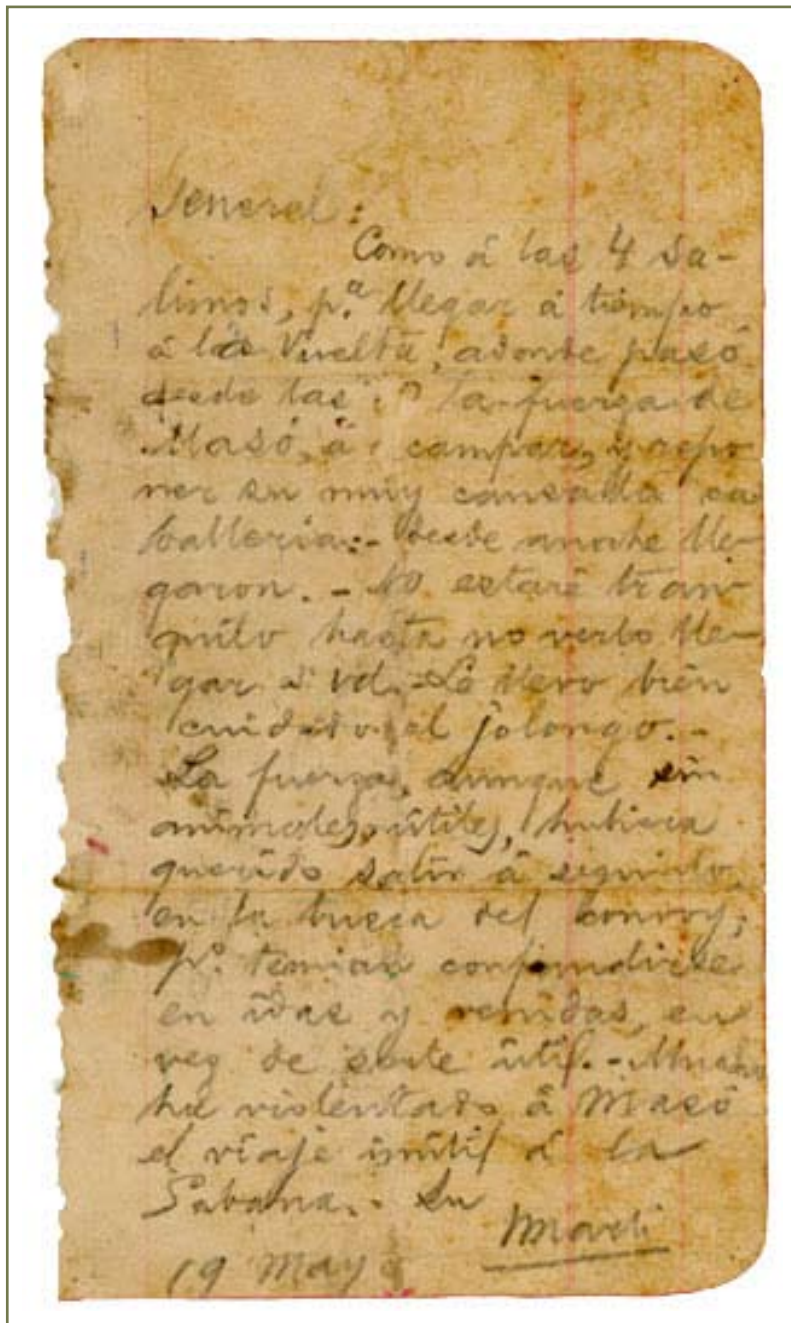 General:
Como á las 4 sa-
limos, p.ª llegar á tiempo
á la Vuelta, adonde pasó
desde las la fuerza de
Masó, á acampar, y repo
ner su muy cansada ca
balleria:- desde anoche lle-
garon. - No estaré tran-
quilo hasta no verlo lle-
gar á Vd. - Le llevo bien
cuidado el jolongo. -
La fuerza, aunque sin
animales útiles, hubiera
querido salir á seguirlo,
en la busca del convoy;
p.º temian confundirse
en idas y venidas, en
vez de serle útil. - Mucho
ha violentado á Masó
el viaje inútil á la
Sabana. - Su
Martí
19 Mayo